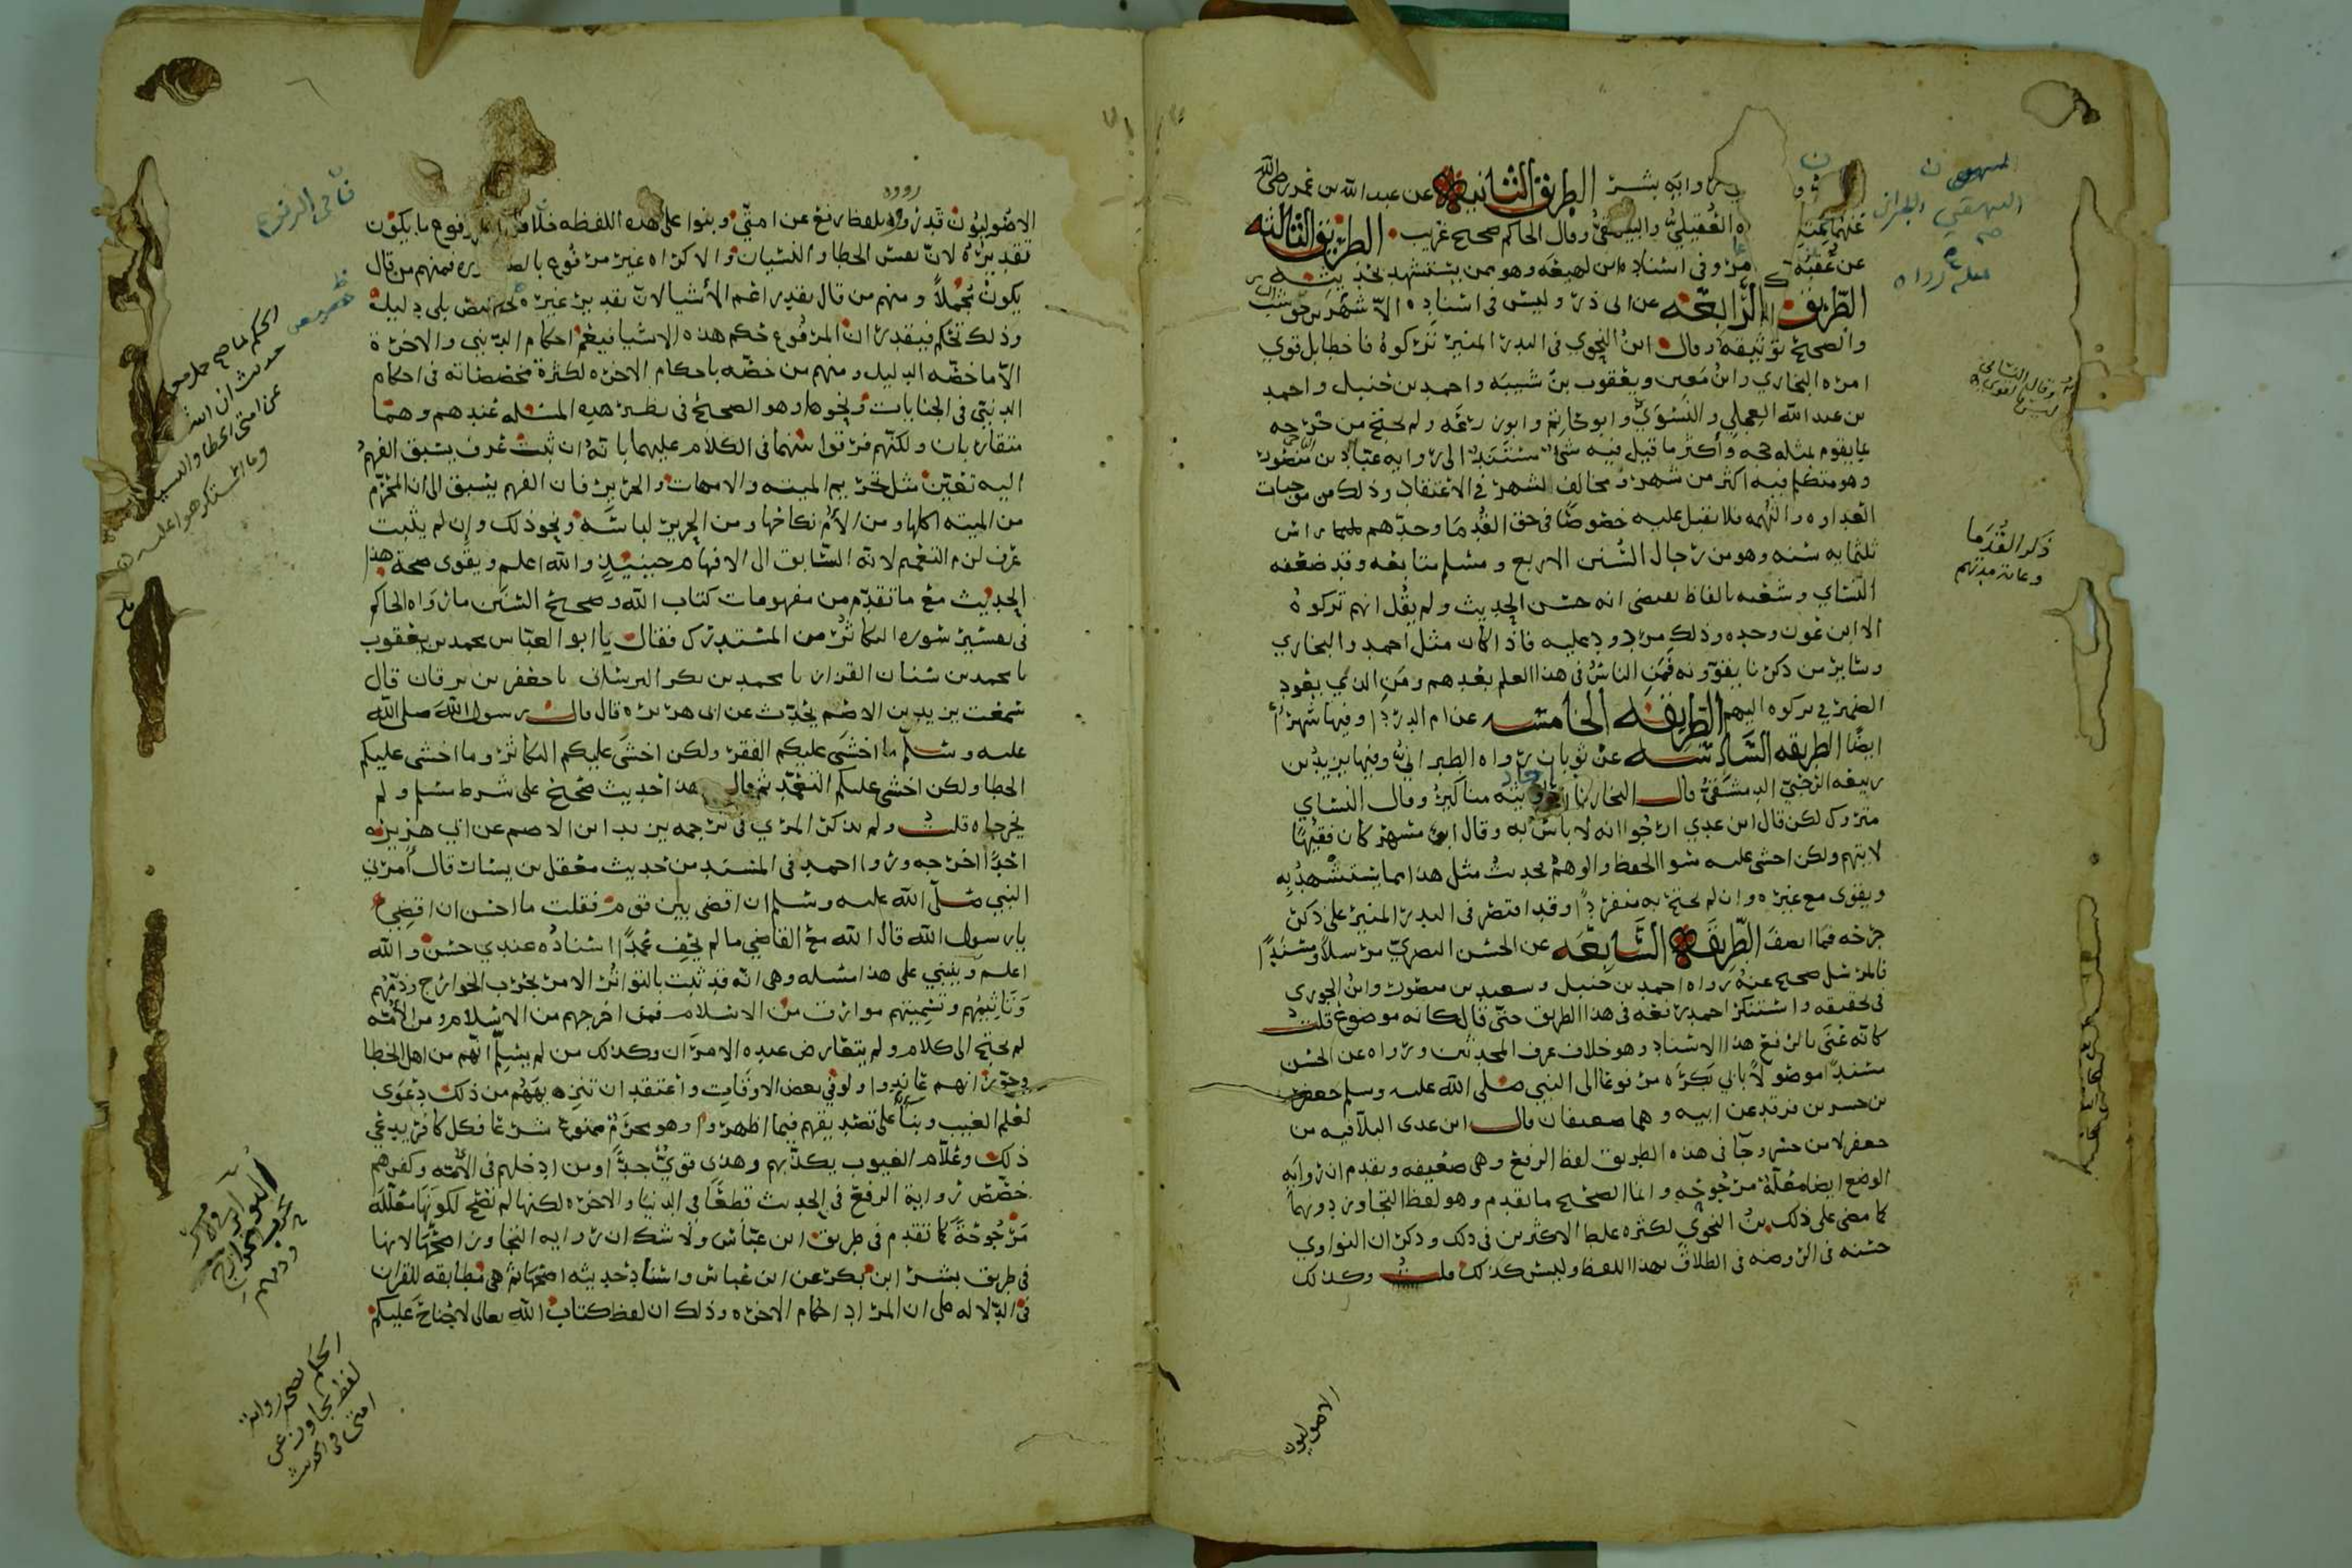 رواية بشر الطريق الثانية عن عبد الله بن عمر رضي الله
عنهما العقيلي والبيهقي وقال الحاكم صحيح غريب الطريق الثالثة
عن عقبة وفي اسناده ابن لهيعة وهو ممن يستشهد بحديثه
الطريق الرابعة عن ابي ذر وليس في اسناده الا شهر بن حوشب
والصحيح توثيقه وقال ابن النحوي في البدر المنير تركوه فاخطا بل قوي
امره البخاري وابن معين ويعقوب بن شيبة واحمد بن حنبل واحمد
بن عبد الله العجلي والنسوي وابو حاتم وابو زرعة ولم يحتج من جرحه
بما يقوم بمثله حجه وأكثر ما قيل فيه شي مستند الى رواية عباد بن منصور
وهو متكلم فيه اكثر من شهر ومخالف لشهر في الاعتقاد وذلك من موجبات
العداوه والتهمه فلا يقبل عليه خصوصًا في حق القدما وحدهم راس
ثلثمايه سنه وهو من رجال السنن الاربع ومسلم متابعه وقد ضعفه
النساي وشعبه بالفاظ تقتضي انه حسن الحديث ولم يقل انهم تركوه
الا ابن عون وحده وذلك مردود عليه فاذا كان مثل احمد والبخاري
وساير من ذكرنا يقوونه فمن الناس في هذا العلم بعدهم ومن الذي يعود
الضمير في تركوه اليهم الطريقه الخامسه عن ام الدردا وفيها شهر
ايضًا الطريقه السادسه عن ثوبان رواه الطبراني وفيها يزيد بن
ربيعه الرحبي الدمشقي قال البخاري احاديثه مناكير وقال النساي
متروك لكن قال ابن عدي ارجوا انه لا باس به وقال ابو مسهر كان فقيهًا
لا يتهم ولكن اخشى عليه سوا الحفظ والوهم فحديث مثل هذا مما يستشهد به
ويقوى مع غيره وان لم يحتج به منفردًا وقد اقتصر في البدر المنير على ذكر
جرحه فما انصف الطريقه السابعه عن الحسن البصري مرسلًا ومسندًا
فالمرسل صحيح عنه رواه احمد بن حنبل وسعيد بن منصور وابن الجوزي
في تحقيقه واستنكر احمد رفعه في هذا الطريق حتى قال كانه موضوع قلت
كانه عنى بالرفع هذا الاسناد وهو خلاف عرف المحدثين ورواه عن الحسن
مسندًا موصولًا بابي بكره مرفوعا الى النبي صلى الله عليه وسلم جعفر
بن جسر بن فرقد عن ابيه وهما ضعيفان قال ابن عدي البلا فيه من
جعفر لا من جسر وجا في هذه الطريق لفظ الرفع وهي ضعيفه وتقدم ان رواية
الوضع ايضا معلة مرجوحه وانما الصحيح ما تقدم وهو لفظ التجاوز دونهما
كما مضى على ذلك بن النحوي لكثره غلط الاكثرين في ذلك وذكر ان النواوي
حسنه في الروضه في الطلاق بهذا اللفظ وليس كذلك قلت وكذلك
الاصوليون
وقال النسائي
ليس بالقوي
ذكر القدما
الاصوليون قد رووه بلفظ رفع عن امتي وبنوا على هذه اللفظه خلافًا
تقديره لان نفس الخطا والنسيان والاكراه غير مرفوع فمنهم من قال
يكون مجملًا ومنهم من قال تقدير اعم الأشيا لان تقدير غيره تحكم محض بلى دليل
وذلك تحكم فيقدر ان المرفوع حكم هذه الاشيا فيعم احكام الدنيى والاخرة
الا ما خصه الدليل ومنهم من خصه باحكام الاخره لكثرة مخصصاته في احكام
الدنيى في الجنايات ونحوها وهو الصحيح في نظير هذه المسئله عندهم وهما
متقاربان ولكنهم فرقوا بينهما في الكلام عليهما بانه ان ثبت عرف يسبق الفهم
اليه تعين مثل تحريم الميته والامهات والحرير فان الفهم يسبق الى ان المحرم
من الميته اكلها ومن الأم نكاحها ومن الحرير لباسه ونحو ذلك وان لم يثبت
عرف لزم التعميم لانه السابق الى الافهام حينيذ والله اعلم ويقوى صحة هذا
الحديث مع ما تقدم من مفهومات كتاب الله وصحيح السنن ما رواه الحاكم
في تفسير سوره التكاثر من المستدرك فقال نا ابو العباس محمد بن يعقوب
نا محمد بن سنان القزاز نا محمد بن بكر البرساني نا جعفر بن برقان قال
سمعت يزيد بن الاصم يحدث عن ابي هريره قال قال رسول الله صلى الله
عليه وسلم ما اخشى عليكم الفقر ولكن اخشى عليكم التكاثر وما اخشى عليكم
الخطا ولكن اخشى عليكم التعمد ثم قال هذا حديث صحيح على شرط مسلم ولم
يخرجاه قلت ولم يذكر المزي في ترجمه يزيد ابن الاصم عن ابي هريره
احدًا اخرجه وروا احمد في المسند من حديث معقل بن يسار قال أمرني
النبي صلى الله عليه وسلم ان اقضي بين قوم فقلت ما احسن ان اقضي
يا رسول الله قال الله مع القاضي ما لم يحف عمدًا اسناده عندي حسن والله
اعلم وينبني على هذا مسله وهي انه قد ثبت بالتواتر الامر بحرب الخوارج وذمهم
وتاثيمهم وتسميتهم موارق من الاسلام فمن اخرجهم من الاسلام ومن الأمه
لم يحتج الى كلام ولم يتعارض عنده الامران وكذلك من لم يسلم انهم من اهل الخطا
وجوز انهم عاندوا ولو في بعض الاوقات واعتقد ان تنزه بههم من ذلك دعوى
لعلم الغيب وبناء على تصديقهم فيما اظهروا وهو محرم ممنوع شرعا فكل كافر يدعي
ذلك وعلام الغيوب يكذبهم وهذى قوي جدًا ومن ادخلهم في الأمه وكفرهم
خصص رواية الرفع في الحديث قطعًا في الدنيا والاخره لكنها لم تصح لكونها معلله
مرجوحة كما تقدم في طريق ابن عباس ولا شك ان روايه التجاوز اصحها لانها
في طريق بشر ابن بكر عن ابن عباس واسناد حديثه اصحها ثم هي مطابقه للقران
في الدلاله على ان المراد احكام الاخره وذلك ان لفظ كتاب الله تعالى لا جناح عليكم
الحكم لما صح
حديث ان الله
عن امتي الخطا والنسيان
وما استكرهوا عليه
الحكم بصحه رواية
لفظ تجاوز عن
امتي في الحديث